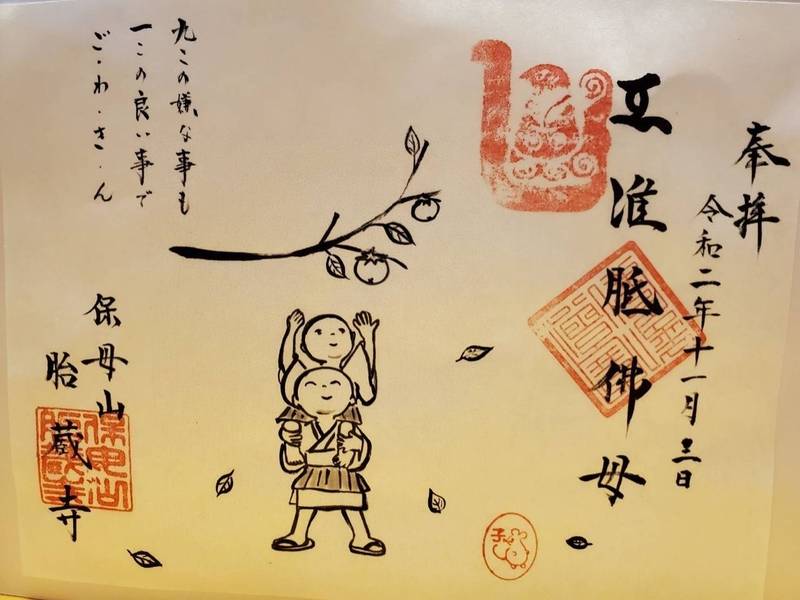 奉拝
令和二年十一月三日
准胝佛母
九この嫌な事も
一この良い事で
ご・わ・さ・ん
保母山
胎蔵寺
子